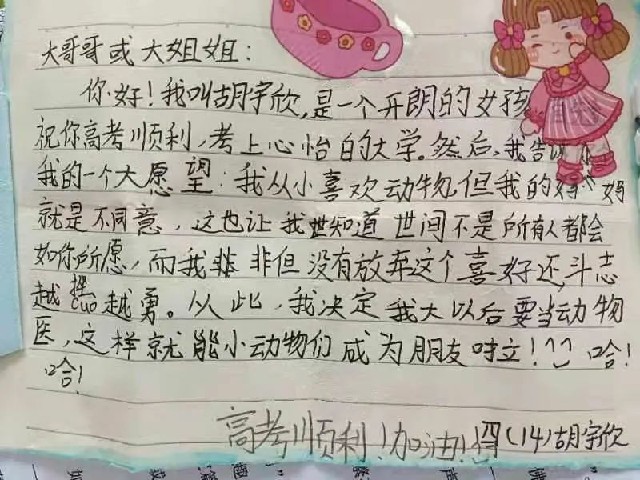 大哥哥或大姐姐:
你好!我叫胡宇欣,是一个开朗的女孩
祝你高考顺利,考上心怡的大学。然后,我告
我的一个大愿望:我从小喜欢动物,但我的妈妈
就是不同意,这也让我世知道世间不是所有人都会
如你所愿,而我非但没有放弃这个喜好还斗志
越挫越勇。从此,我决定我大以后要当动物
医,这样就能小动物们成为朋友吋立!^^哈!
哈!
高考顺利!加油!四(14)胡宇欣